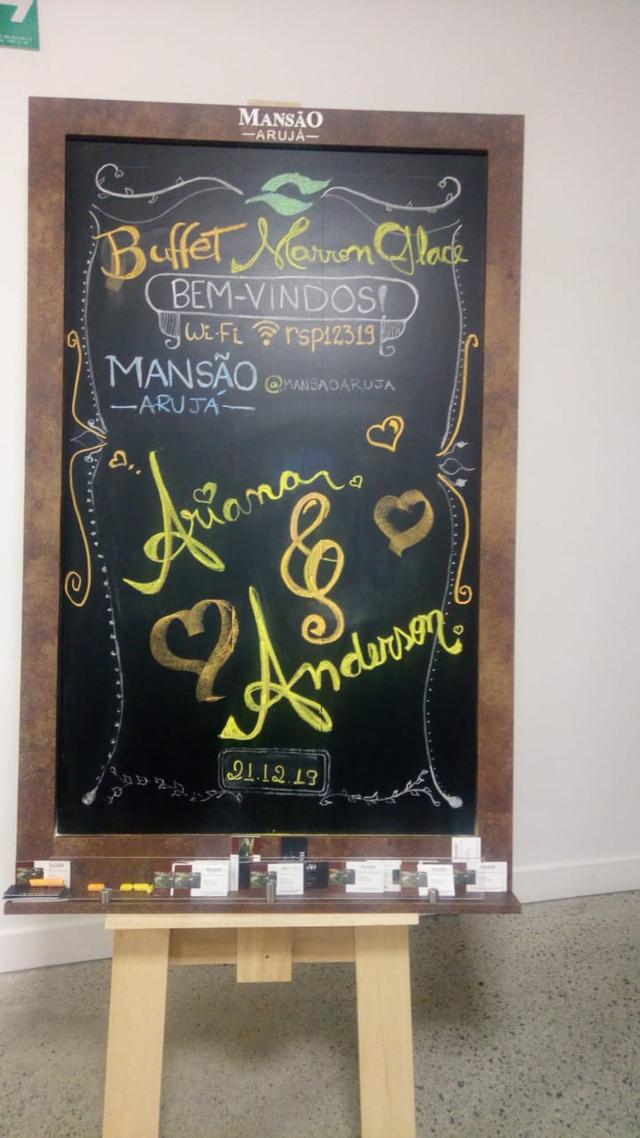 MANSÃO
—ARUJÁ—
Buffet Marron Glace
BEM-VINDOS!
Wi-Fi rsp12319
MANSÃO @MANSAOARUJA
—ARUJÁ—
Ariana
&
Anderson
21.12.19